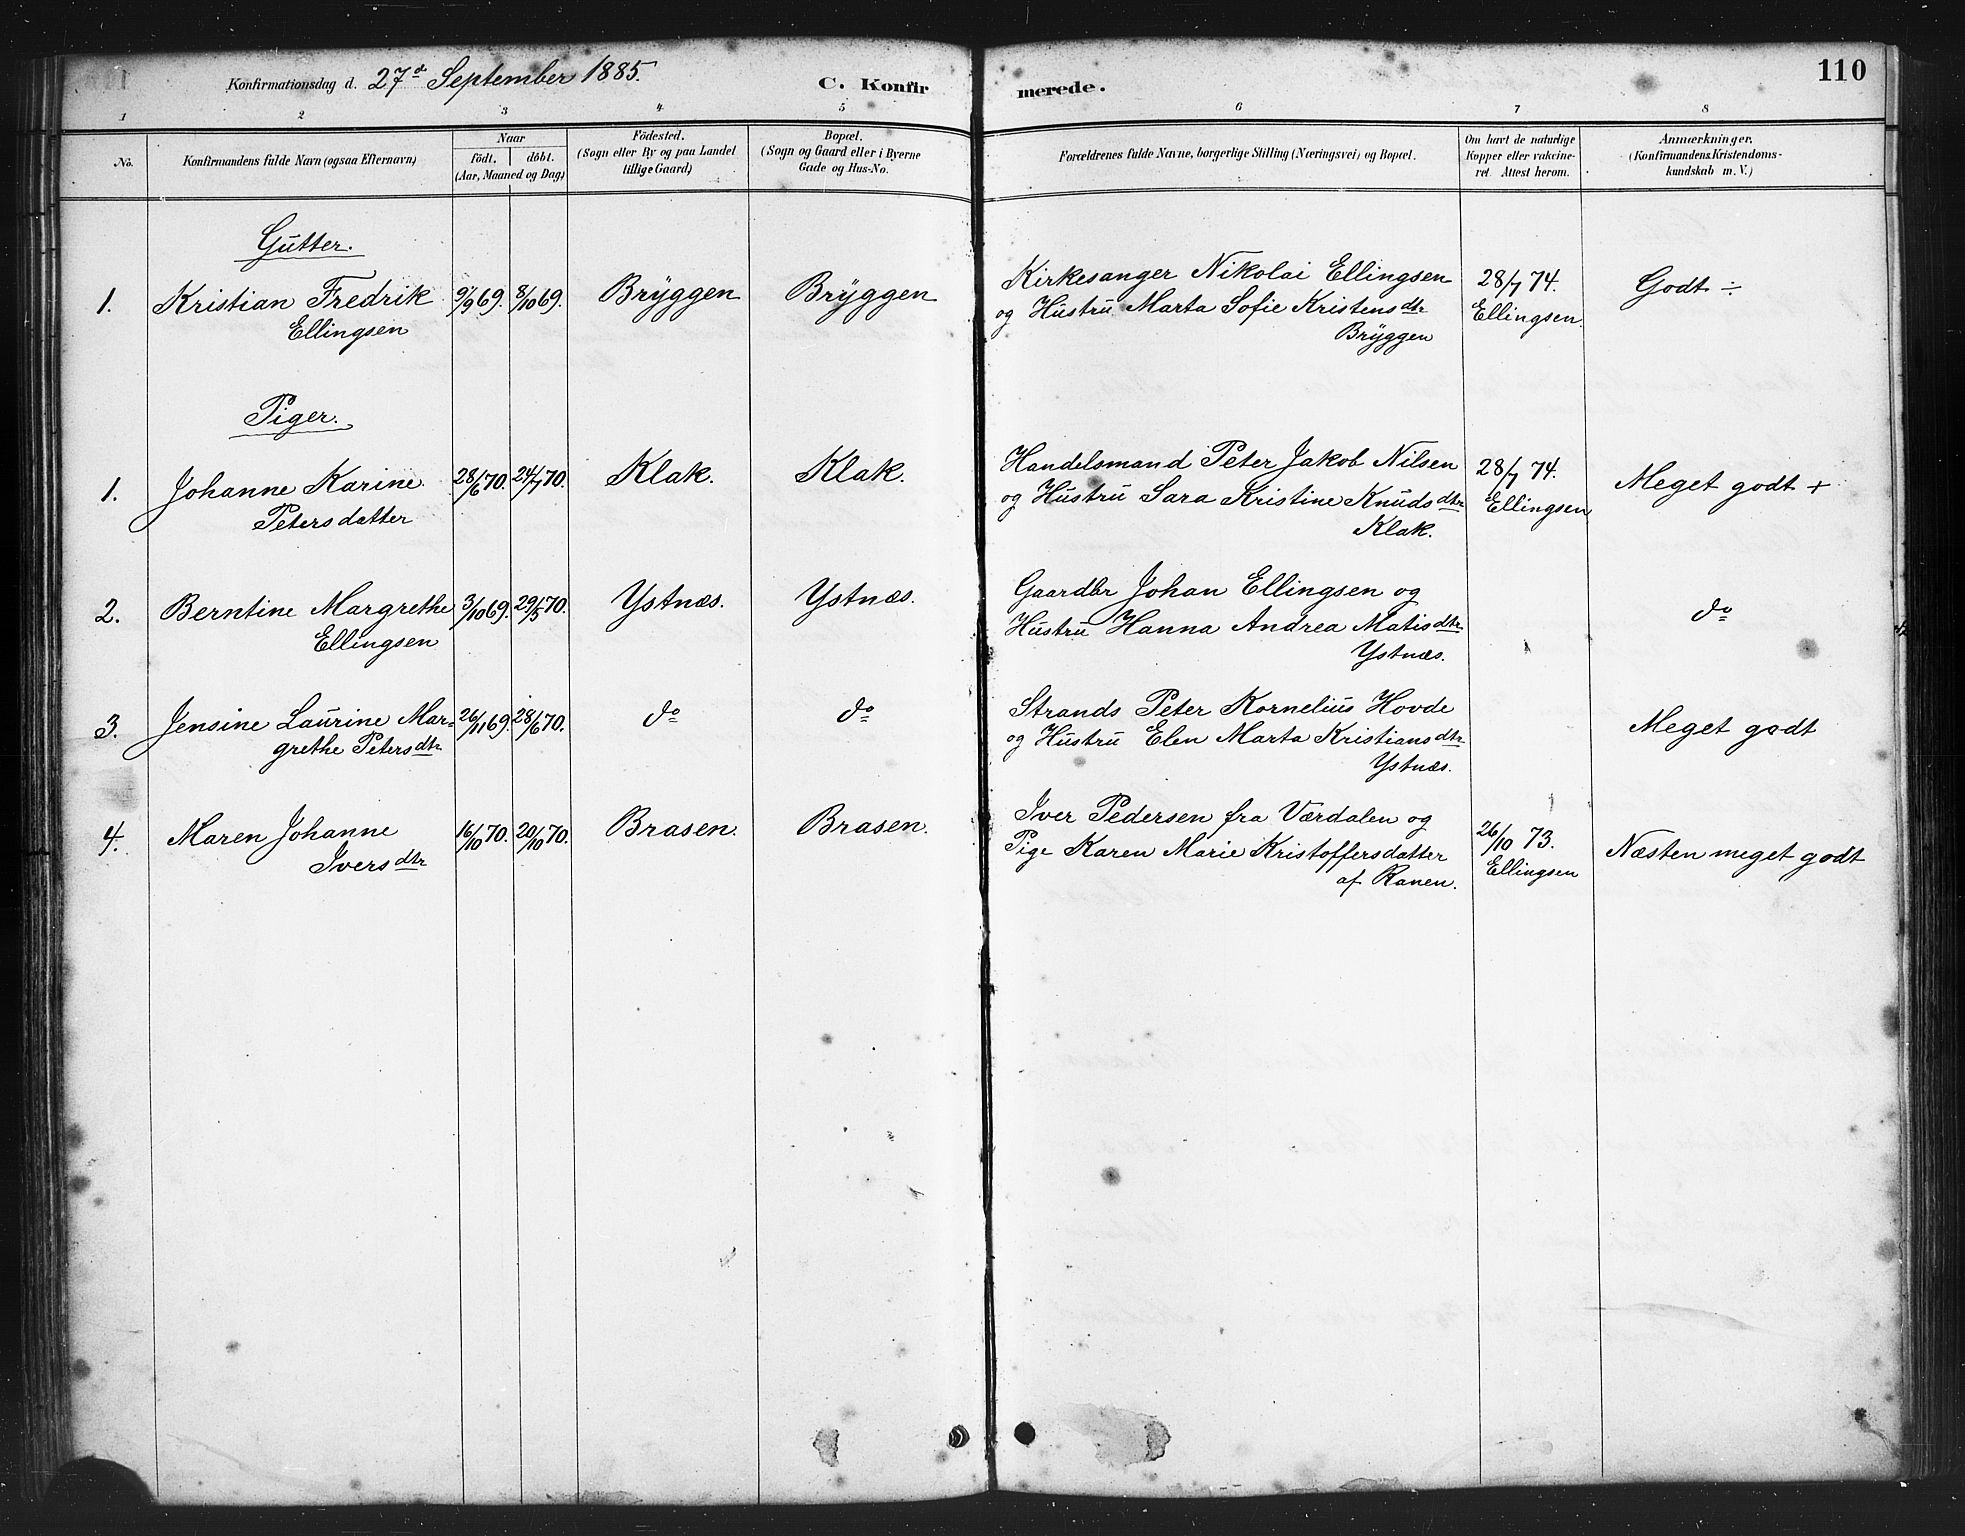 Konfirmationsdag d. 27d September 1885. C. Konfirmerede. 110
1 2 3 4 5 6 7 8
No. Konfirmandens fulde Navn (ogsaa Efternavn)
Naar
födt. döbt.
(Aar, Maaned og Dag)
Födested.
(Sogn eller By og paa Landet
tillige Gaard)
Bopæl.
(Sogn og Gaard eller i Byerne
Gade og Hus-No.
Forældrenes fulde Navne, borgerlige Stilling (Næringsvei) og Bopæl.
Om havt de naturlige
Kopper eller vakcine-
ret. Attest herom.
Anmærkninger.
(Konfirmandens Kristendoms-
kundskab m. V.)
Gutter.
1. Kristian Fredrik 9/9 69. 8/10 69. Bryggen Bryggen
Ellingsen
Kirkesanger Nikolai Ellingsen 28/7 74. Godt ÷
og Hustru Marta Sofie Kristensdtr Ellingsen.
Bryggen
Piger.
1. Johanne Karine 28/6 70. 24/7 70. Klak. Klak.
Petersdatter
Handelsmand Peter Jakob Nilsen 28/7 74. Meget godt +
og Hustru Sara Kristine Knudsdtr Ellingsen
Klak.
2. Berntine Margrethe 3/10 69. 29/5 70. Ystnæs. Ystnæs.
Ellingsen
Gaardbr Johan Ellingsen og do
Hustru Hanna Andrea Matisdtr
Ystnæs.
3. Jensine Laurine Mar- 26/11 69. 28/6 70. do do
grethe Petersdtr
Strands Peter Kornelius Hovde Meget godt
og Hustru Elen Marta Kristiansdtr
Ystnæs.
4. Maren Johanne 16/10 70. 20/10 70. Brasen. Brasen.
Iversdtr
Iver Pedersen fra Værdalen og 26/10 73. Næsten meget godt
Pige Karen Marie Kristoffersdatter Ellingsen
af Ranen.